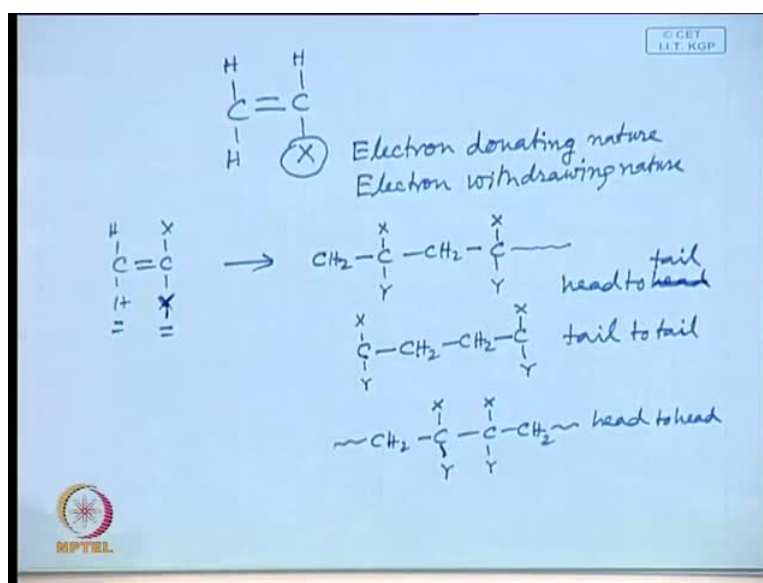 © CET
I.I.T. KGP
H H
C = C
H X Electron donating nature
Electron withdrawing nature
H X
C = C → CH2 - C - CH2 - C
H Y
X X
Y Y
tail
head to head
X X
C - CH2 - CH2 - C tail to tail
Y Y
X X
CH2 - C - C - CH2 head to head
Y Y
NPTEL